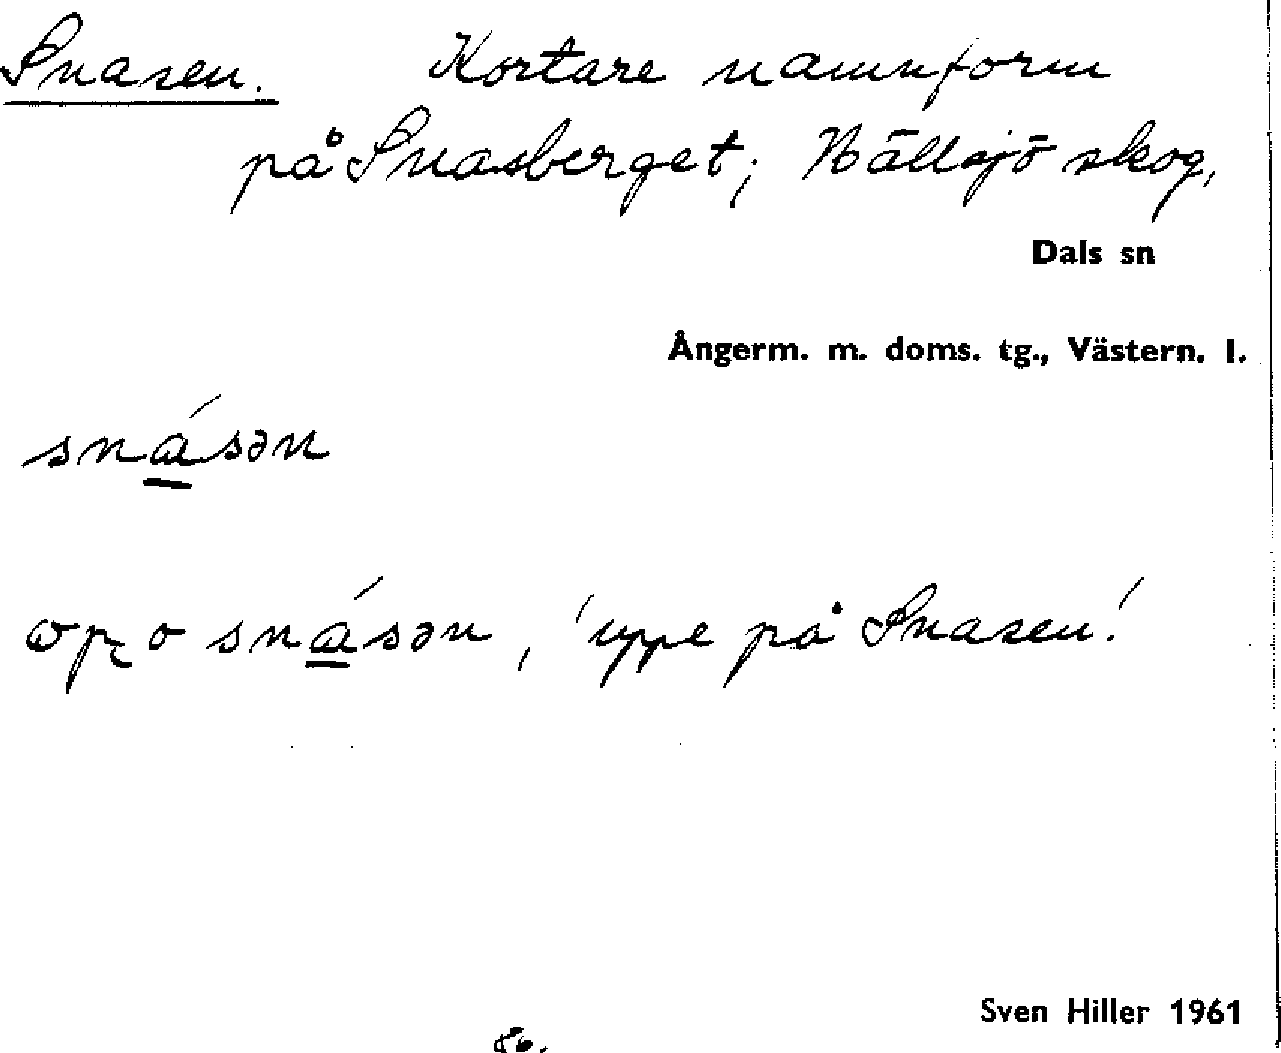 Snasen. Kortare namnform
på Snasberget; Hällsjö skog,
Dals sn
Ångerm. m. doms. tg., Västern. l.
snásən
o snásən, 'uppe på Snasen'
Sven Hiller 1961